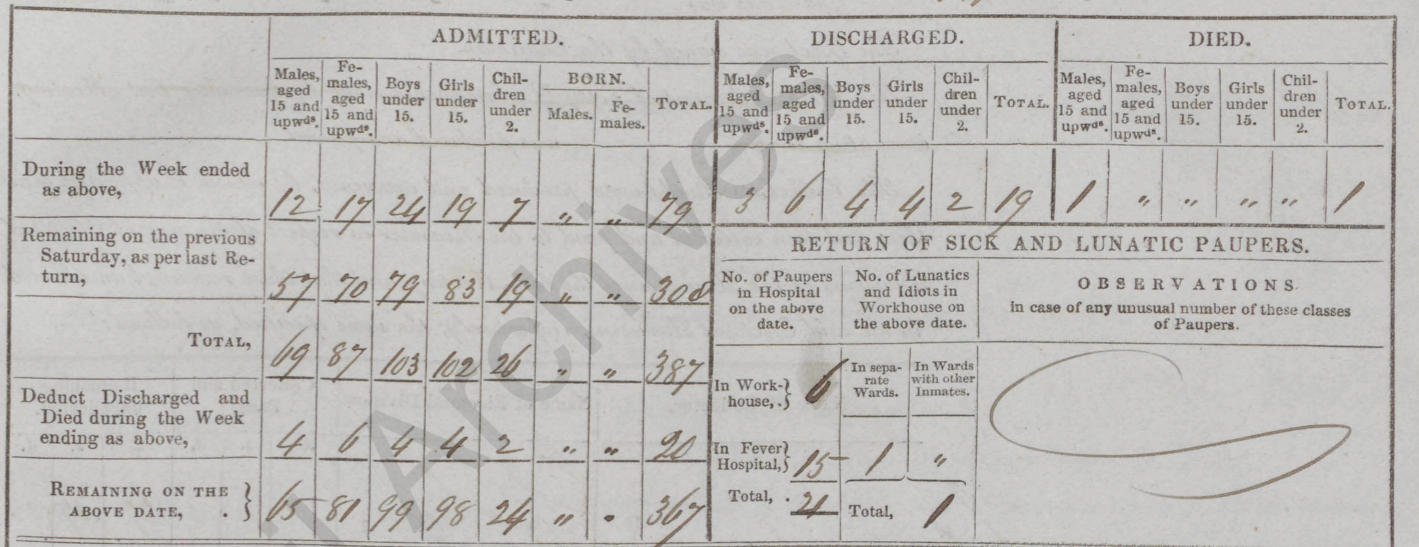 ADMITTED. DISCHARGED. DIED.
Males, aged 15 and upwds. Females, aged 15 and upwds. Boys under 15. Girls under 15. Children under 2. BORN. Males. Females. TOTAL. Males, aged 15 and upwds. Females, aged 15 and upwds. Boys under 15. Girls under 15. Children under 2. TOTAL. Males, aged 15 and upwds. Females, aged 15 and upwds. Boys under 15. Girls under 15. Children under 2. TOTAL.
During the Week ended
as above, 12 17 24 19 7 " " 79 3 6 4 4 2 19 1 " " " " 1
Remaining on the previous
Saturday, as per last Re-
turn, 57 70 79 83 19 " " 308
TOTAL, 69 87 103 102 26 " " 387
Deduct Discharged and
Died during the Week
ending as above, 4 6 4 4 2 " " 20
REMAINING ON THE
ABOVE DATE, . 65 81 99 98 24 " " 367
RETURN OF SICK AND LUNATIC PAUPERS.
No. of Paupers
in Hospital
on the above
date.
No. of Lunatics
and Idiots in
Workhouse on
the above date.
OBSERVATIONS
in case of any unusual number of these classes
of Paupers.
In Work-
house, . 6
In sepa-
rate
Wards.
In Wards
with other
Inmates.
In Fever
Hospital, 15 1 "
Total, . 21 Total, 1
Archives